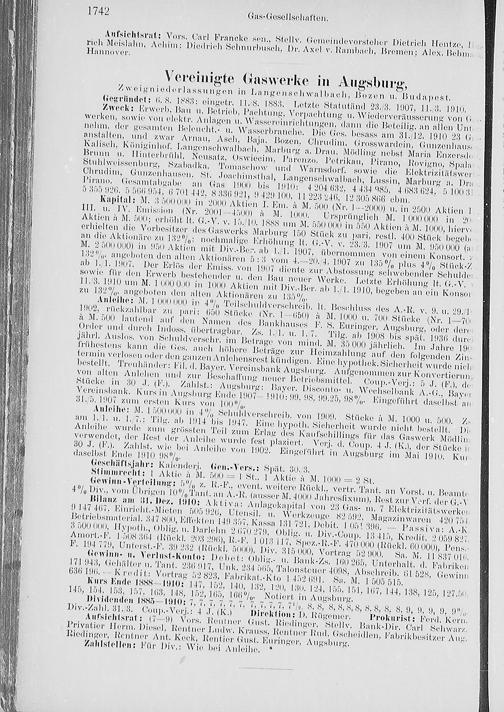 1742
Gas-Gesellschaften.
Aufsichtsrat: Vors. Carl Francke sen., Stellv. Gemeindevorsteher Dietrich Hentze,
rich Meislahn, Achim; Diedrich Schnurbusch, Dr. Axel v. Rambach, Bremen; Alex.
Hannover.
Vereinigte Gaswerke in Augsburg,
Zweigniederlassungen in Langenschwalbach, Bozen u. Budapest.
Gegründet: 6./8. 1883; eingetr. 11./8. 1883. Letzte Statutänd. 23./3. 1907, 11./3. 1910.
Zweck: Erwerb, Bau u. Betrieb, Pachtung, Verpachtung u. Wiederveräusserung von
werken, sowie von elektr. Anlagen u. Wassereinrichtungen, dann die Beteilig. an allen
nehm. der gesamten Beleucht.- u. Wasserbranche. Die Ges. besass am 31./12. 1910 23
anstalten, und zwar Arnau, Asch, Baja, Bozen, Chrudim, Grosswardein, Gunzenhausen
Kalisch, Königinhof, Langenschwalbach, Marburg a. Drau, Mödling nebst Maria Enzersdorf
Brunn u. Hinterbrühl, Neusatz, Oswiecim, Parenzo, Petrikau, Pirano, Rovigno,
Stuhlweissenburg, Szabadka, Tomaschow und Warnsdorf, sowie die Elektrizitätswerke
Chrudim, Gunzenhausen, St. Joachimsthal, Langenschwalbach, Lussin, Marburg a. Drau
Pirano. Gesamtabgabe an Gas 1900 bis 1910: 4 204 632, 4 434 985, 4 683 624,
5 355 926, 5 566 954, 6 701 442, 8 336 921, 9 429 100, 11 223 246, 12 305 866 cbm.
Kapital: M. 3 500 000 in 2000 Aktien I. Em. à M. 500 (Nr. 1—2000) u. in 2500 Aktien
III. u. IV. Emission (Nr. 2001—4500) à M. 1000. Ursprünglich M. 1 000 000 in
Aktien à M. 500; erhöht lt. G.-V. v. 15./10. 1888 um M. 550 000 in 550 Aktien à M. 1000,
erhielten die Vorbesitzer des Gaswerks Marburg 150 Stück zu pari, restl. 400 Stück
an die Aktionäre zu 132%; nochmalige Erhöhung lt. G.-V. v. 23./3. 1907 um M. 950 000
M. 2 500 000) in 950 Aktien mit Div.-Ber. ab 1./1. 1907, übernommen von einem Konsort.
132%, angeboten den alten Aktionären 5 : 3 vom 4.—20./4. 1907 zu 135% plus 4% Stück-Z.
ab 1./1. 1907. Der Erlös der Emiss. von 1907 diente zur Abstossung schwebender
sowie für den Erwerb bestehender u. den Bau neuer Werke. Letzte Erhöhung lt. G.-V.
11./3. 1910 um M. 1 000 000 in 1000 Aktien mit Div.-Ber. ab 1./1. 1910, begeben an ein
zu 132%, angeboten den alten Aktionären zu 135%.
Anleihe: M. 1 000 000 in 4% Teilschuldverschreib. lt. Beschluss des A.-R. v. 9. u.
1902, rückzahlbar zu pari; 650 Stücke (Nr. 1—650) à M. 1000 u. 700 Stücke (Nr.
à M. 500 lautend auf den Namen des Bankhauses F. S. Euringer, Augsburg, oder
Order und durch Indoss. übertragbar. Zs. 1./1. u. 1./7. Tilg. ab 1908 bis spät. 1936
jährl. Auslos. von Schuldverschr. im Betrage von mind. M. 30 000 jährlich. Im Jahre
frühestens kann die Ges. auch höhere Beträge zur Heimzahlung auf den folgenden
termin verlosen oder den ganzen Anleiherest kündigen. Eine hypothek. Sicherheit wurde
bestellt. Treuhänder: Fil. d. Bayer. Vereinsbank Augsburg. Aufgenommen zur Konvertierung
von alten Anlehen und zur Beschaffung neuer Betriebsmittel. Coup.-Verj.: 5 J. (F.),
Stücke in 30 J. (F.). Zahlst.: Augsburg: Bayer. Disconto u. Wechselbank A.-G., Bayer.
Vereinsbank. Kurs in Augsburg Ende 1907—1910: 99, 98, 99.25, 98%. Eingeführt daselbst am
31./5. 1907 zum ersten Kurs von 100%.
Anleihe: M. 1 500 000 in 4% Schuldverschreib. von 1909. Stücke à M. 1000 u. 500.
am 1./1. u. 1./7. Tilg. ab 1914 bis 1947. Eine hypoth. Sicherheit wurde nicht bestellt.
Anleihe wurde zum grössten Teil zum Erlag des Kaufschillings für das Gaswerk Mödling
verwendet, der Rest der Anleihe wurde fest plaziert. Verj. d. Coup. 4 J. (K.), der Stücke in
30 J. (F.). Zahlst. wie bei Anleihe von 1902. Eingeführt in Augsburg im Mai 1910.
daselbst Ende 1910 98%.
Geschäftsjahr: Kalenderj. Gen.-Vers.: Spät. 30./3.
Stimmrecht: 1 Aktie à M. 500 = 1 St., 1 Aktie à M. 1000 = 2 St.
Gewinn-Verteilung: 5% z. R.-F., event. weitere Rückl., vertr. Tant. an Vorst. u. Beamte
4% Div., vom Übrigen 10% Tant. an A.-R. (ausser M. 4000 Jahresfixum), Rest zur Verf. der G.-V.
Bilanz am 31. Dez. 1910: Aktiva: Anlagekapital von 23 Gas- u. 7 Elektrizitätswerken
9 147 467, Einricht.-Mieten 505 926, Utensil. u. Werkzeuge 82 592, Magazinwaren
Betriebsmaterial. 347 800, Effekten 149 357, Kassa 131 721, Debit. 1 051 396. — Passiva: A.-K.
3 500 000, Hypoth., Oblig. u. Darlehn 2 670 279, Oblig. u. Div.-Coup. 13 415, Kredit. 2 059 827,
Amort.-F. 1 508 364 (Rückl. 203 296), R.-F. 1 013 171, Spez.-R.-F. 470 000 (Rückl. 60 000), Pens.-
F. 194 779, Unterst.-F. 39 232 (Rückl. 5000), Div. 315 000, Vortrag 52 900. Sa. M. 11 837 016.
Gewinn- u. Verlust-Konto: Debet: Oblig.- u. Bank-Zs. 160 265, Unterhalt. d. Fabriken
171 943, Gehälter u. Tant. 236 917, Unk. 234 565, Talonsteuer 4098, Abschreib. 61 528, Gewinn
636 196. — Kredit: Vortrag 52 823, Fabrikat.-Kto 1 452 691. Sa. M. 1 505 515.
Kurs Ende 1888—1910: 147, 152, 140, 132, 120, 130, 124, 155, 151, 167, 144, 138, 125, 127.50,
145, 154, 153, 157, 163, 148, 152, 165, 166%. Notiert in Augsburg.
Dividenden 1885—1910: 7, 7, 7, 7, 7, 7, 7, 7, 7, 7½, 8, 8, 8, 8, 8, 8, 8, 8, 8, 8, 9, 9, 9, 9%.
Div.-Zahl. 31./3. Coup.-Verj.: 4 J. (K.) Direktion: D. Rügemer. Prokurist: Ferd. Kern.
Aufsichtsrat: (7—9) Vors. Rentner Gust. Riedinger, Stellv. Bank-Dir. Carl Schwarz,
Privatier Herm. Diesel, Rentner Ludw. Krauss, Rentner Rud. Gscheidlen, Fabrikbesitzer Aug.
Riedinger, Rentner Ant. Keck, Rentier Gust. Euringer, Augsburg.
Zahlstellen: Für Div.: Wie bei Anleihe. *